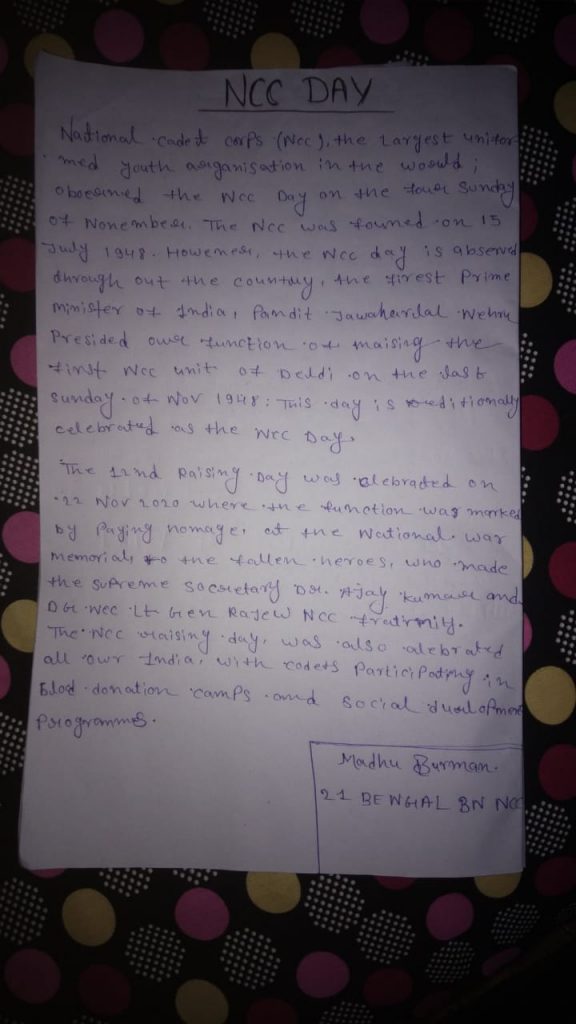 NCC DAY
National cadet corps (NCC), the largest unifor
med youth organisation in the would;
obseerined the NCC Day on the four Sunday
of Nonember. The NCC was founed on 15
July 1948. Howener, the NCC day is abserved
through out the country, the first Prime
minister of India, Pandit Jawaharlal Nehru
Presided over function of raising the
first NCC unit of Delhi on the last
Sunday of Nov 1948: This day is
celebrated as the NCC Day.
The 12nd Raising Day was celebrated on
22 Nov 2020 where the function was marked
by Paying homage, at the National war
memorial, to the fallen heroes, who made
the supreme socretary DR. Ajay Kumar and
DG NCC Lt Gen Rajew NCC fratirnity.
The NCC raising day, was also alebrated
all owr India, with codets Participating in
Blod donation camps and social
Programms.
Madhu Burman.
21 BENGAL BN NCC